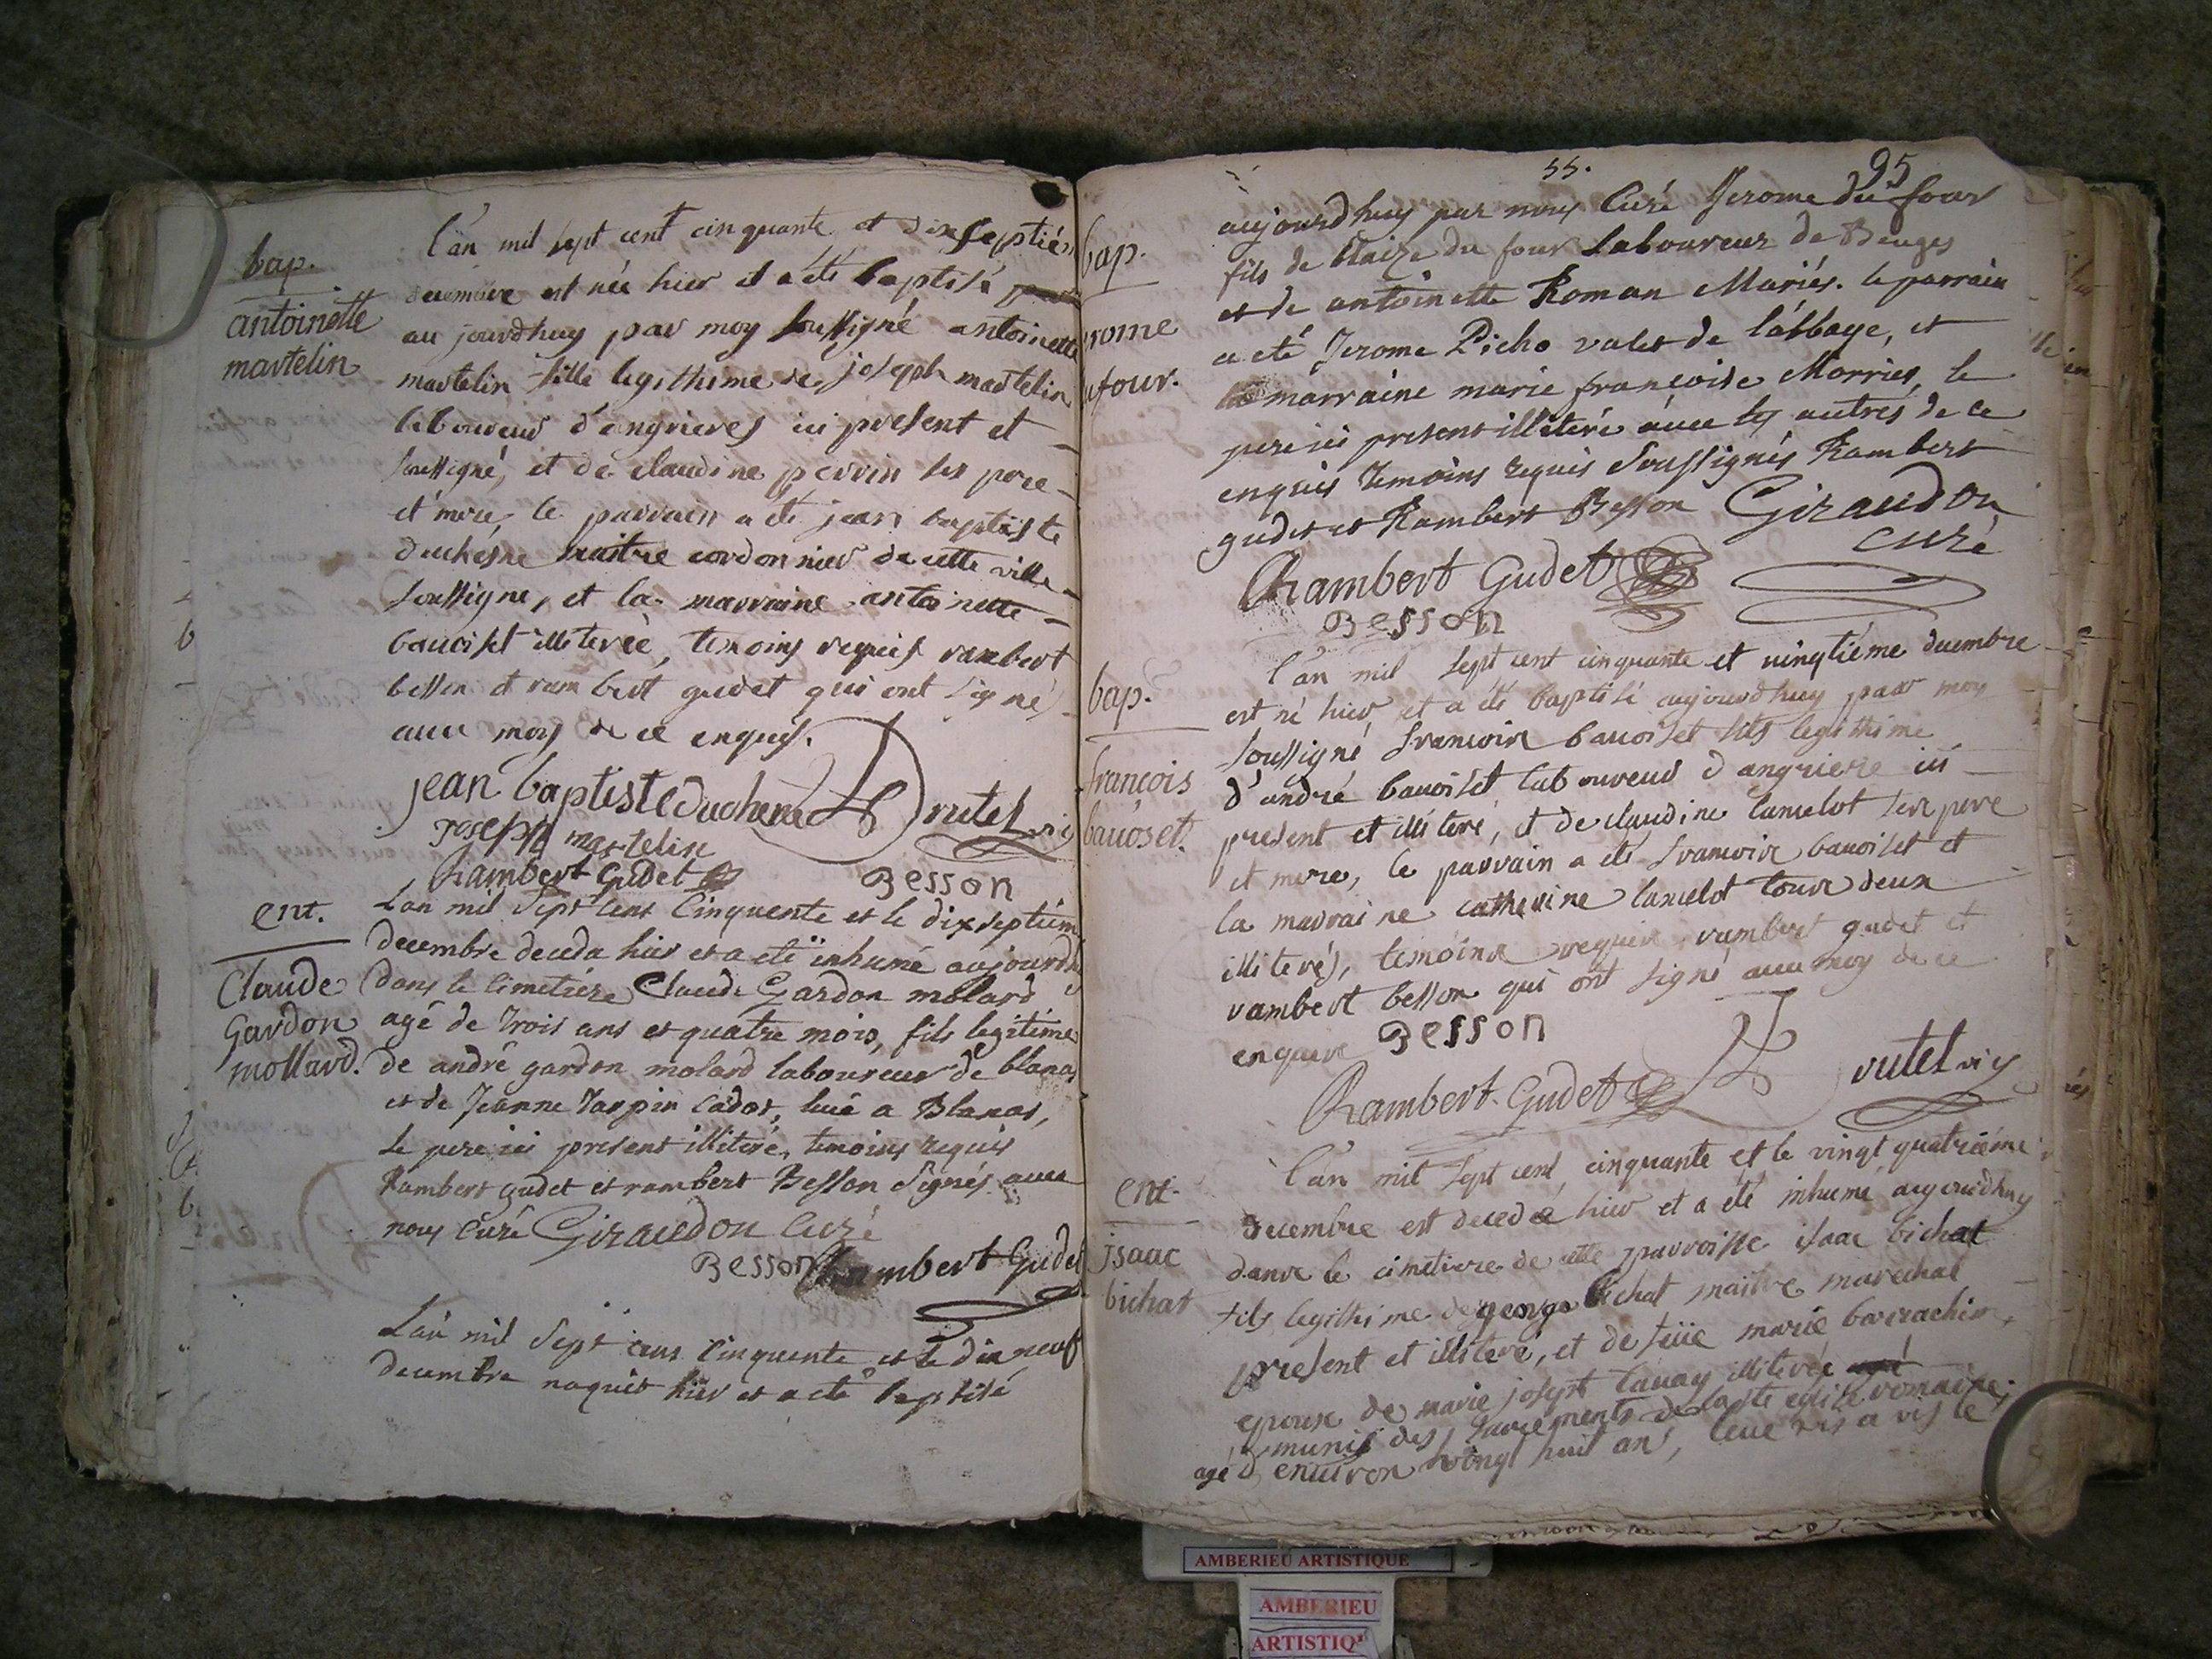 bap.
antoinette
martelin
l'an mil sept cent cinquante et dix septiém
decembre est née hier et a été baptisé
au jourdhuy par moy soussigné antoinette
martelin fille legithime de joseph martelin
laboureur d'angrieres ici present et
soussigné, et de claudine perrin ses pere
et mere, le parrain a été jean baptiste
duchesne maitre cordonnier de cette ville
soussigné, et la marraine antoinette
bauoiset illiterée, temoins requis rambert
besson et rambert gudet qui ont signé
auec moy de ce enquis.
jean baptiste Duchene rutet vic
joseph martelin
Rambert Gudet
Besson
ent.
Claude
Gardon
mollard.
L'an mil sept cent Cinquente et le dixseptiém
decembre deceda hier et a eté inhumé aujourdhuy
dans le Cimetiére Claude Gardon molard
agé de trois ans et quatre mois, fils legitime
de andré gardon molard laboureur de blanas
et de Jeanne tarpin Cadot, luué a Blanas,
le pere ici present illiteré, temoins requis
Rambert gudet et rambert Besson signés auec
nous curé Giraudon Curé
Besson Rambert Gudet
L'an mil sept cens Cinquente et le dix neuf
decembre naquit hier et a eté baptisé
55. 95
bap.
rome
ufour.
aujourdhuy par nous Curé Jerome du four
fils de blaize du four Laboureur de Benges
et de antoinette Roman Mariés. le parrain
a eté Jerome Picho valet de l'abbaye, et
la marraine marie françoise Morrier, le
pere ici present illiteré auec les autres de ce
enquis temoins requis soussignés Rambert
gudet et Rambert Besson Giraudon
curé
Rambert Gudet
Besson
bap.
françois
bauoset.
l'an mil sept cent cinquante et uingtiéme decembre
est né hier et a été baptisé aujourdhuy par moy
soussigné francoix bauoiset fils legithime
d'andré bauoiset laboureur d'angriere ici
present et illiteré, et de claudine lancelot ses pere
et mere, le parrain a été francoix bauoiset et
la marraine catherine lancelot tous deux
illiterés, temoins requis rambert gudet et
rambert besson qui ont signé auec moy de ce
enquis Besson
Rambert Gudet rutet vic
ent.
jsaac
bichat
l'an mil sept cent cinquante et le vingt quatriéme
decembre est decedé hier et a été inhumé aujourdhuy
dans le cimetiere de cette parroisse isaac bichat
fils legithime de george bichat maitre marechal
present et illiteré, et de feüe marie barrachin,
epoux de marie joseph tauay illiterée
munis des sacrements de la ste eglise romaine
agé d'enuiron vingt huit an, luué vis a vis le
AMBERIEU ARTISTIQUE
AMBERIEU
ARTISTIQ